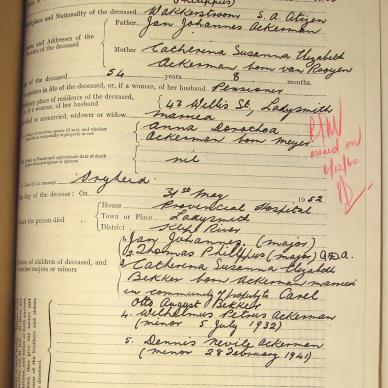 Philippus)
Birthplace and Nationality of the deceased. Wakkerstroom S.A. Citizen
Father Jan Johannes Ackerman.
Names and Addresses of the
Parents of the deceased
Mother Catherina Susanna Elizabeth
Ackerman born van Rooyen
Age of the deceased 54 years 8 months.
Occupation in life of the deceased, or, if a woman, of her husband Pensioner
Ordinary place of residence of the deceased, or, if a woman, of her husband 43 Willis St, Ladysmith
Married or unmarried, widower or widow married
Anna Dorothea
Ackerman born Meyer.
R/W
issued on
6/12/60
nil
Vryheid.
The day of the decease: On 31st May 1952
House Provincial Hospital
Where the person died Town or Place Ladysmith
District Klip River
1. Jan Johannes. (major)
2. Thomas Philippus (major)
3. Catherina Susanna Elizabeth
Names of children of deceased, and
whether majors or minors
Bekker born Ackerman married
in community of property to Carel
Otto August Bekker
4. Wilhelmus Petrus Ackerman
(minor 5 July 1932)
5. Dennis Nevily Ackerman
(minor 28 February 1941)